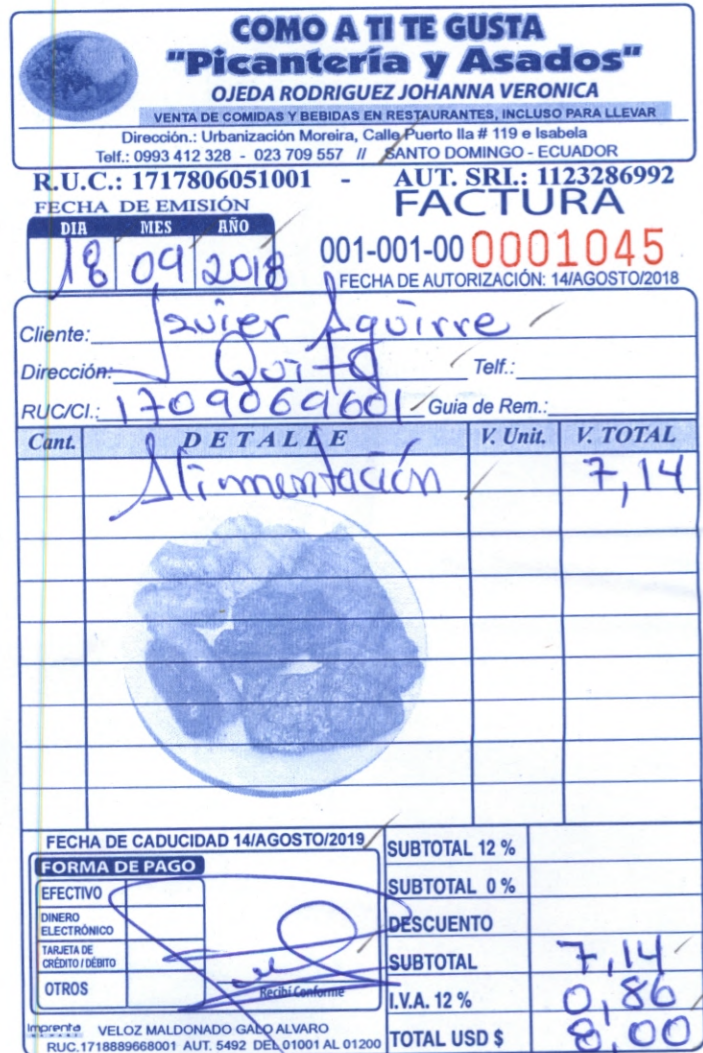 COMO A TI TE GUSTA
"Picantería y Asados"
OJEDA RODRIGUEZ JOHANNA VERONICA
VENTA DE COMIDAS Y BEBIDAS EN RESTAURANTES, INCLUSO PARA LLEVAR
Dirección.: Urbanización Moreira, Calle Puerto Ila # 119 e Isabela
Telf.: 0993 412 328 - 023 709 557 // SANTO DOMINGO - ECUADOR
R.U.C.: 1717806051001 - AUT. SRI.: 1123286992
FECHA DE EMISIÓN FACTURA
DIA MES AÑO
18 09 2018
001-001-00 0001045
FECHA DE AUTORIZACIÓN: 14/AGOSTO/2018
Cliente: Javier Aguirre
Dirección: Quito Telf.:
RUC/CI.: 1709069601 Guia de Rem.:
Cant. DETALLE V. Unit. V. TOTAL
Alimentación 7,14
FECHA DE CADUCIDAD 14/AGOSTO/2019
FORMA DE PAGO
EFECTIVO
DINERO ELECTRÓNICO
TARJETA DE CRÉDITO / DÉBITO
OTROS
Recibí Conforme
SUBTOTAL 12 %
SUBTOTAL 0 %
DESCUENTO
SUBTOTAL 7,14
I.V.A. 12 % 0,86
TOTAL USD $ 8,00
Imprenta VELOZ MALDONADO GALO ALVARO
RUC.1718889668001 AUT. 5492 DEL 01001 AL 01200